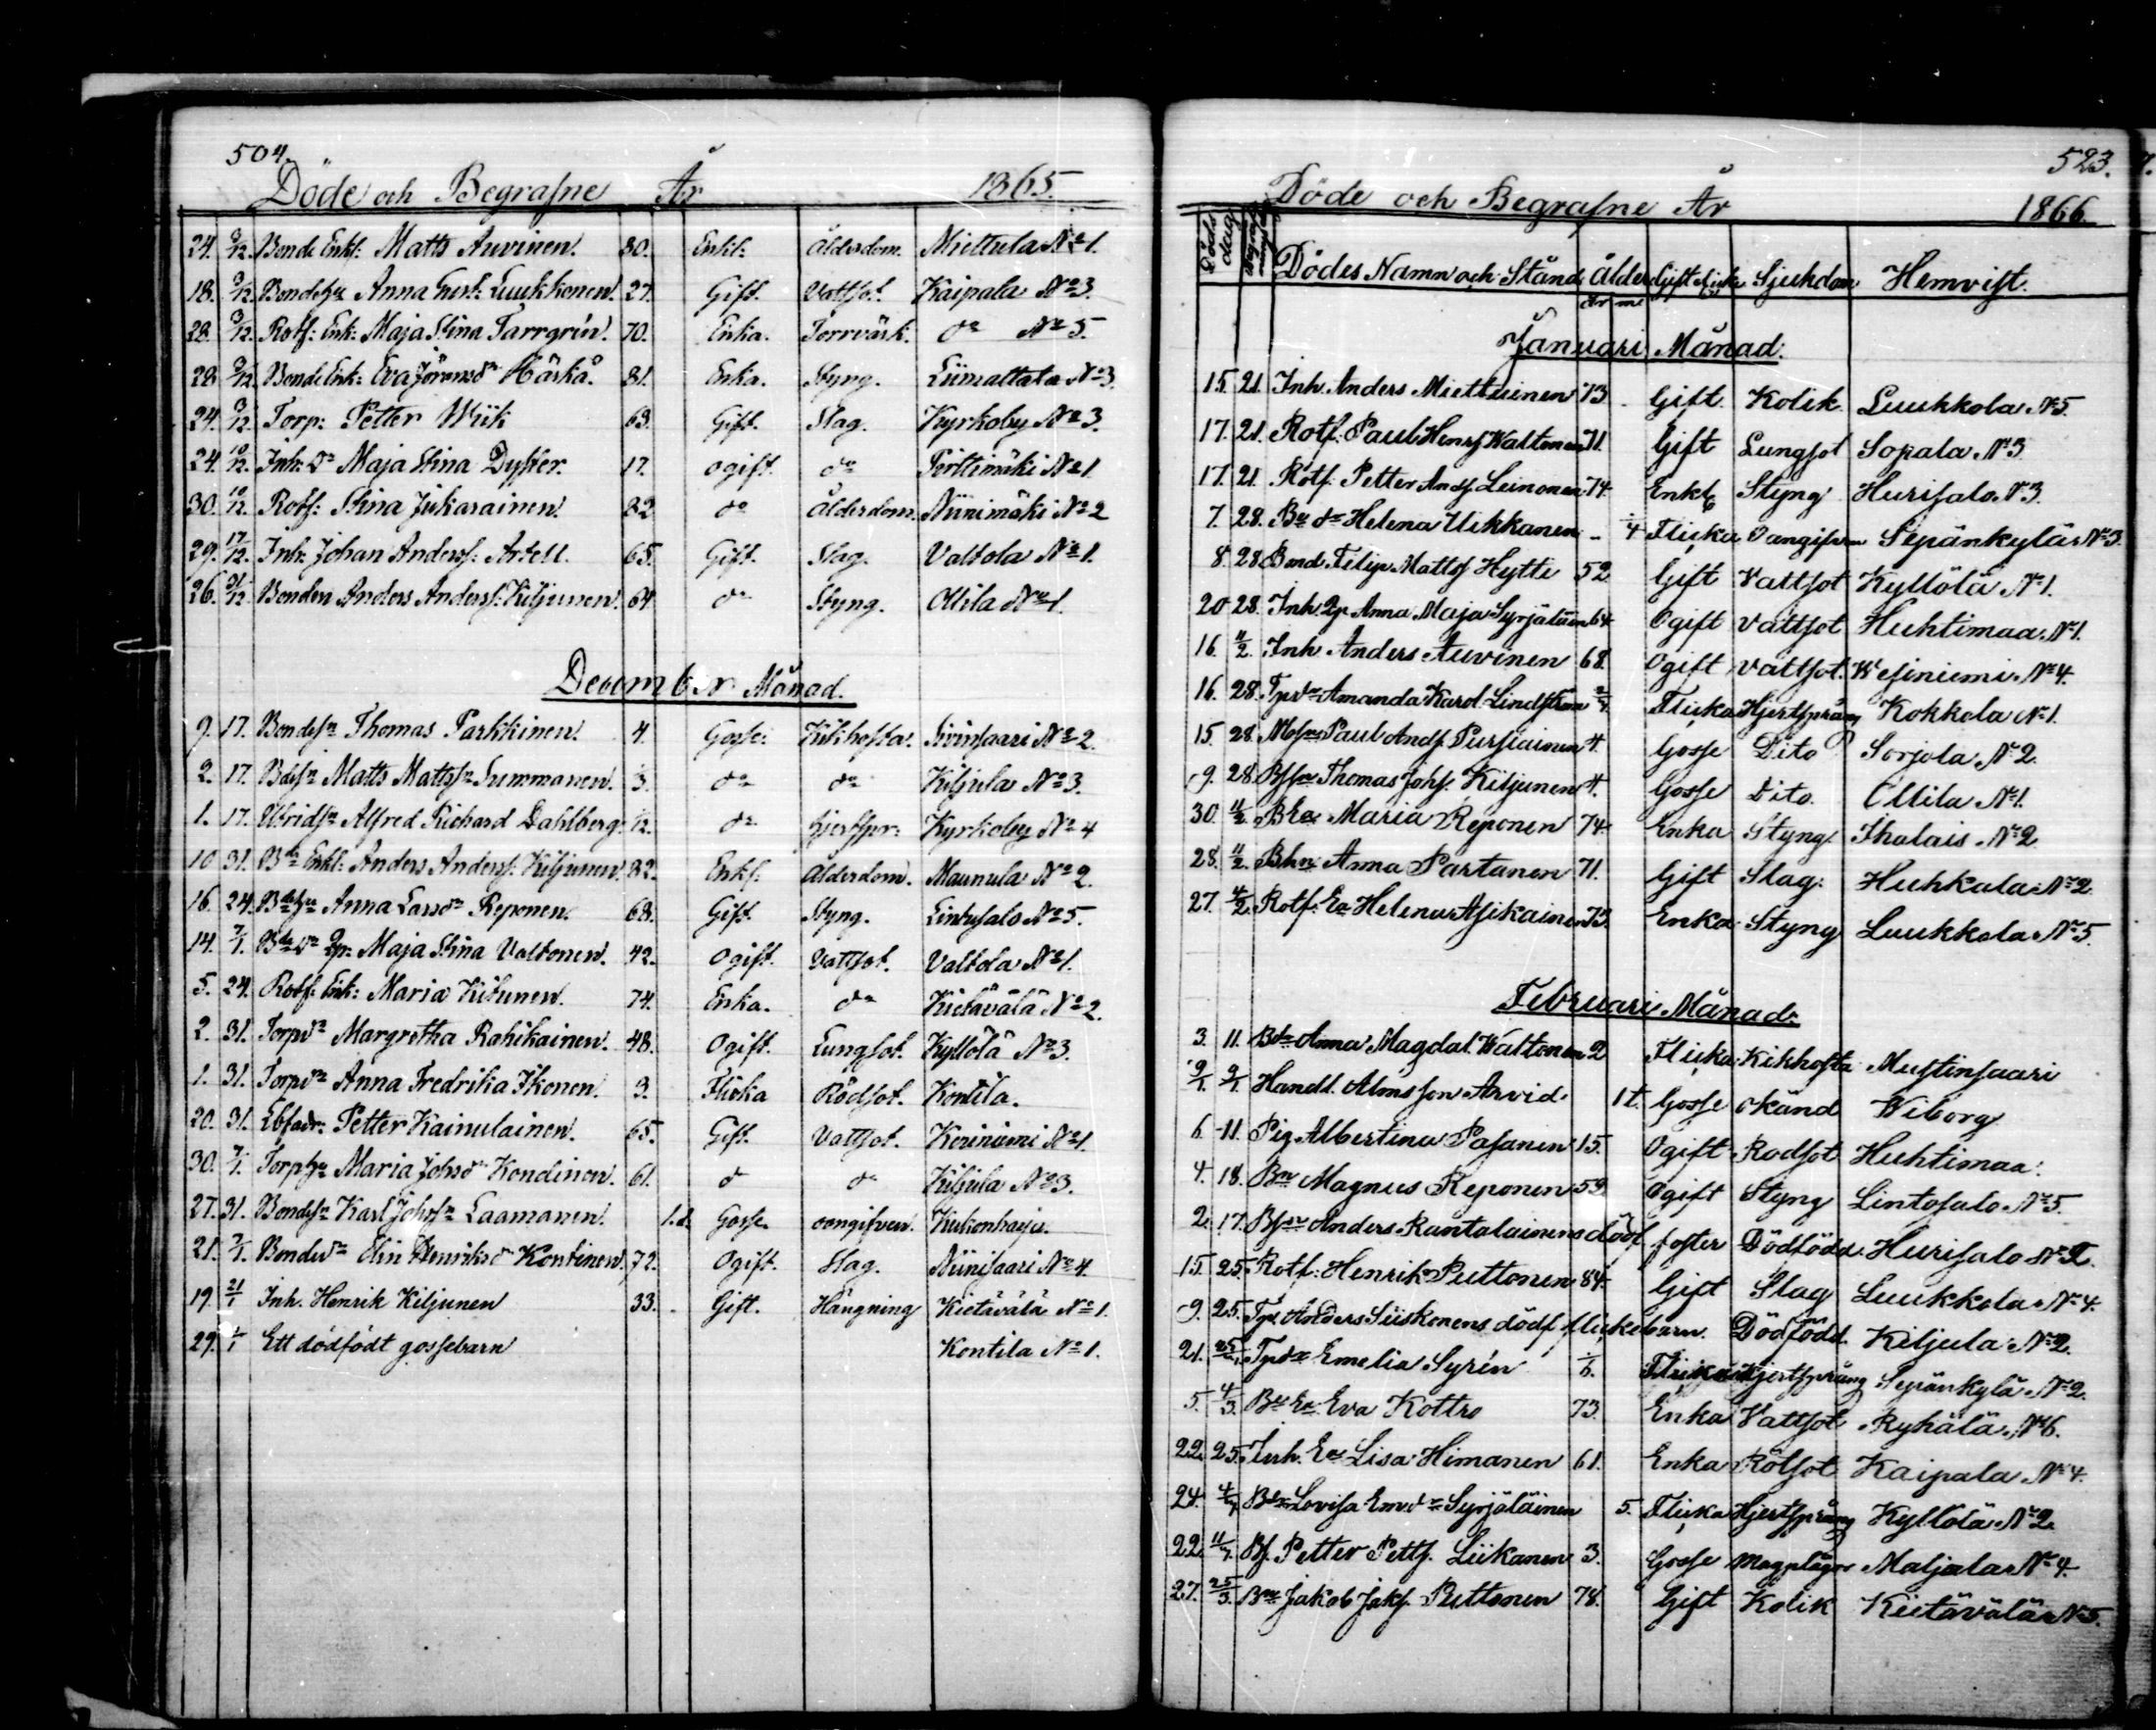 504.
Döde och Begrafne År 1865.
24. 3/12. Bonde Enkl: Matts Auvinen. 80. Enkl: Ålderdom. Miettula No 1.
18. 3/12. Bondehu Anna Christ: Luukkonen. 27. Gift. Vattsot. Kaipala No 3.
28. 3/12. Rotf: Enk: Maja Stina Tarrgrén. 70. Enka. Torrvärk. do No 5.
28 3/12. Bonde Enk: Eva Göransdr Härkä. 81. Enka. Styng. Liimattala No 3.
24. 3/12. Torp: Petter Wiik 63. Gift. Slag. Kyrkoby No 3.
24. 10/12. Inh: dr Maja Stina Dyster. 17. ogift. do Pirttimäki No 1
30. 10/12. Rotf: Stina Jukarainen. 82 do Ålderdom. Niinimäki No 2
29. 17/12. Inh: Johan Anderss: Artell. 65. Gift. Slag. Valtola No 1.
26. 31/12. Bonden Anders Anderss: Kiljunen. 64 do Styng. Ollila No 1.
December Månad.
9. 17. Bondesn Thomas Parkkinen. 4. Gosse: Kikhosta. Sivinsaari No 2.
2. 17. Bdesn Matts Mattssn Summanen. 3. do do Kiljula No 3.
1. 17. Ulfridsn Alfred Richard Dahlberg. 1/12. do hjertspr: Kyrkoby No 4
10 31. Bde Enkl: Anders Anderss: Kiljunen. 82. Enkl: Ålderdom. Maunula No 2.
16. 24. Bdehu Anna Larsdr Reponen. 68. Gift. Styng. Lintusalo No 5.
14. 7/1. Bdedr Qp: Maja Stina Valtonen. 42. Ogift. Vattsot. Valtola No 1.
5. 24. Rotf: Enk: Maria Kitunen. 74. Enka. do Kietävälä No 2.
2. 31. Torpdr Margretha Rahikainen. 48. Ogift. Lungsot. Kyllölä No 3.
1. 31. Torpdr Anna Fredrika Ikonen. 3. Flicka Rödsot. Kontila.
20. 31. Ebfadr: Petter Kainulainen. 65. Gift. Vattsot. Koriniemi No 1.
30. 7/1. Torphu Maria Johsdr Kondinen. 61. do do Kiljula No 3.
27. 31. Bondesn Karl Johssn Laamanen. 1.d. Gosse. oangifven. Kukonharju.
21. 7/1. Bondedr Elin Henriksdr Kontinen. 72. Ogift. Slag. Niinisaari No 4.
19. 21/1 Inh. Henrik Kiljunen 33. Gift. Hängning Kietävälä No 1.
29. 1/1 Ett dödfödt gossebarn Kontila No 1.
523.
Döde och Begrafne År 1866
Döds dag Dödes Namn och Stånd Ålder Gift Sjukdom Hemvist.
år m
Januari Månad.
15. 21. Inh. Anders Miettiinen 73 Gift Kolik Luukkola No 5.
17. 21. Rotf: Paul Henrs Waltonen 71. Gift Lungsot Sopala No 3
17. 21. Rotf: Petter Ands Leinonen 74. Enkl Styng Hurisalo No 3.
7. 28. Bdr Helena Ukkanen - 4 Flicka Oangifven Sepänkylä No 3.
8. 28. Bond Filip Matts Hytti 52 Gift Vattsot Kyllölä No 1.
20 28. Inh. Qp. Anna Maja Syrjäläinen 64 Ogift Vattsot Huhtimaa No 1.
16. 4/2. Inh Anders Auvinen 68. Ogift Vattsot. Wesiniemi No 4.
16. 28. Tpdr Amanda Karol. Lindström Flicka Hjertsprång Kokkola No 1.
15. 28. Paul Ands. Pursiainen 4. Gosse Dito Sorjola No 2.
9. 28. Bssn Thomas Johs. Kiljunen 4. Gosse Dito. Ollila No 1.
30. 4/2. B Ea Maria Reponen 74 Enka Styng. Ihalais No 2
28. 4/2. Bhu Anna Partanen 71. Gift Slag. Huhkala No 2
27. 4/2. Rotf. Ea Helena Asikainen 73. Enka Styng Luukkola No 5.
Februari Månad.
3. 11. Bdr Anna Magdal. Waltonen 2 Flicka Kikhosta Mustinsaari
9/1 9/1 Handl. Alms son Arvid. 1t. Gosse okänd Wiborg
6. 11. Pig Albertina Pasanen 15. Ogift Rödsot Huhtimaa.
4. 18. Bn Magnus Reponen 59. Ogift Styng Lintosalo No 5.
2. 17. Bssn Anders Rantalainens dödf. foster Dödfödd Hurisalo No 2.
15. 25. Rotf: Henrik Puttonen 84. Gift Slag Luukkola No 4.
9. 25. Tp: Anders Siiskonens dödf. flickebarn. Dödfödd. Kiljula No 2.
21. Tpdr Emelia Syrén 6. Flicka Hjertsprång Sepänkylä No 2.
5. 4/3. B Ea Eva Kottro 73. Enka Vattsot Ryhälä No 6.
22. 25. Inh. Ea Lisa Himanen 61. Enka Rötsot Kaipala No 4.
24. Bdr Lovisa Emdr Syrjäläinen 5. Flicka Hjertsprång Kyllölä No 2.
22. Bs. Petter Petts. Liikanen 3. Gosse Magplågor Maljala No 4.
27. 25/3. Bn Jakob Jaks. Puttonen 78. Gift Kolik Kietävälä No 5.